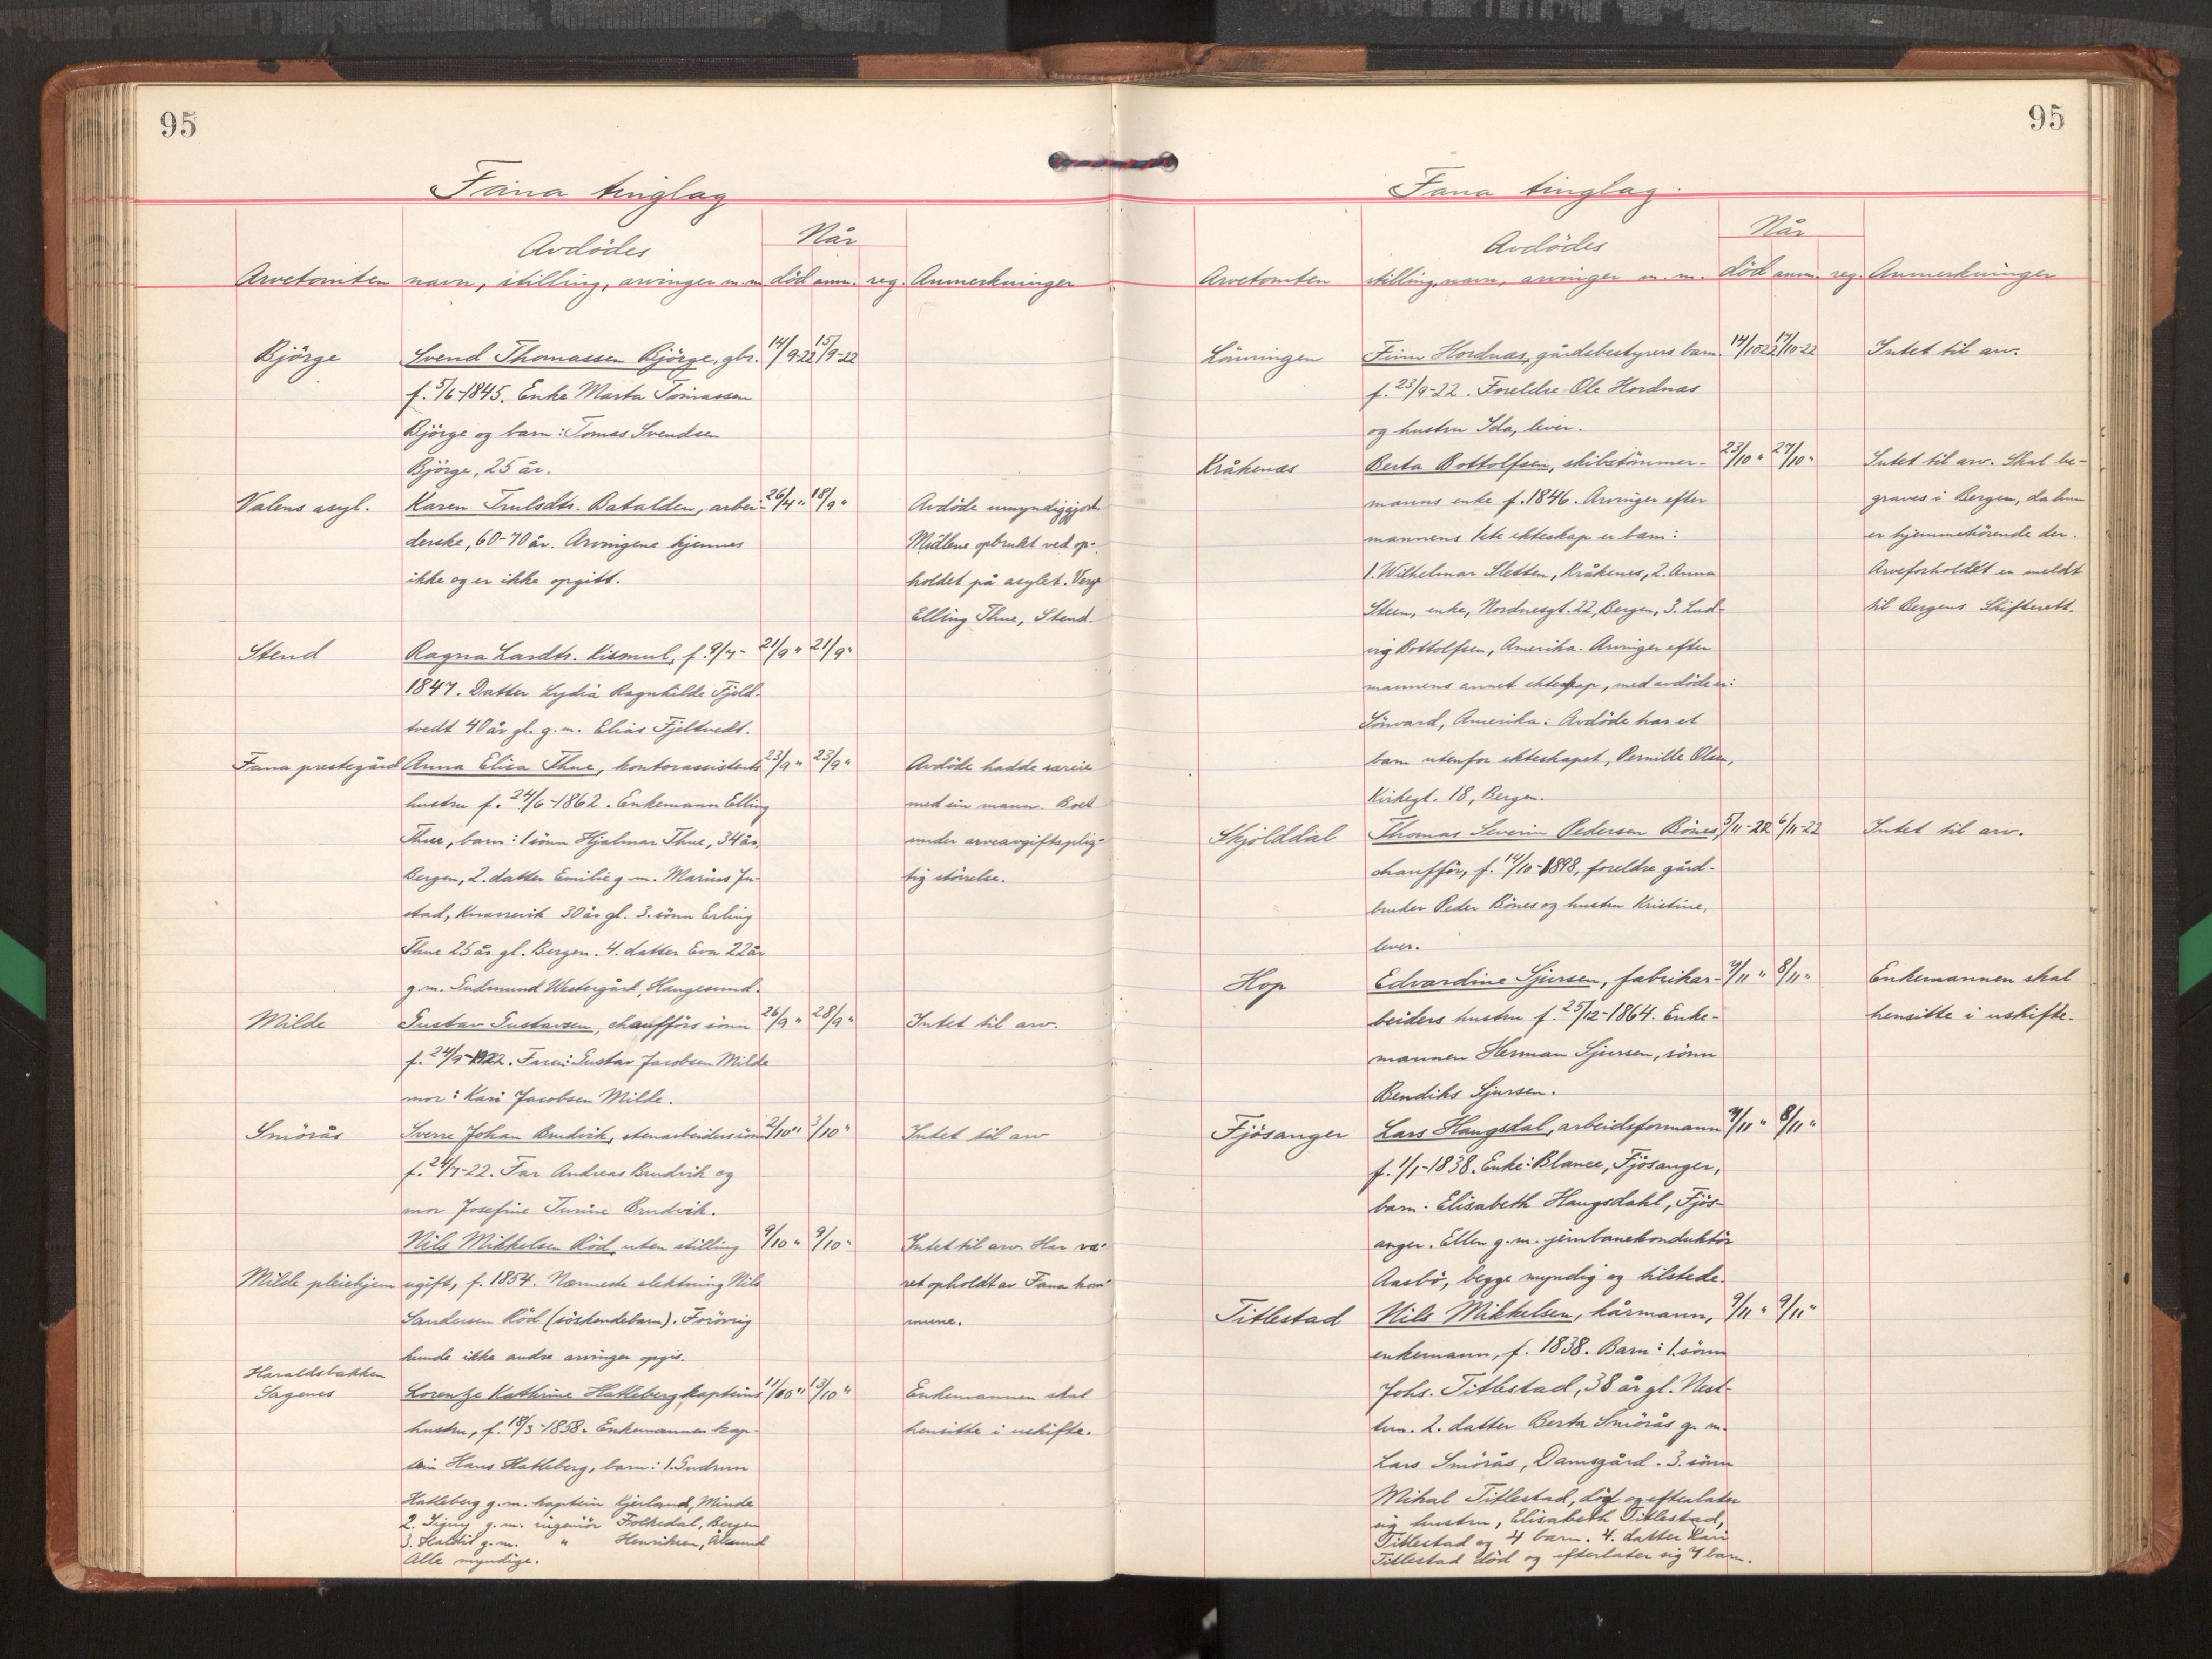 95
Fana tinglag
Når
Avdödes
Arvetomten navn, stilling, arvinger m.m. död anm. reg. Anmerkninger
Björge Svend Thomassen Björge, gbr. 14/9-22 15/9-22
f. 5/6-1845. Enke Marta Tomassen
Björge og barn: Tomas Svendsen
Björge, 25 år.
Valens asyl. Karen Trulsdtr. Batalden, arbei- 26/4 " 18/9 " Avdöde umyndiggjort
derske, 60-70 år. Arvingene kjennes Midlene opbrukt ved op-
ikke og er ikke opgitt. holdet på asylet. Verge
Elling Thue, Stend.
Stend Ragna Larsdtr. Kismul, f. 9/7- 21/9 " 21/9 "
1847. Datter Lydia Ragnhilde Fjeld-
tvedt 40 år gl. g.m. Elias Fjeltvedt.
Fana prestegård Anna Elisa Thue, kontorassistents 23/9 " 23/9 " Avdöde hadde særeie
hustru f. 24/6-1862. Enkemann Elling med sin mann. Boet
Thue, barn: 1 sönn Hjalmar Thue, 34 år, under arveavgiftsplig-
Bergen, 2. datter Emilie g.m. Marius
stad, 30 år gl. 3. sönn Erling tig störrelse.
Thue 25 år gl. Bergen. 4. datter Eva 22 år
g.m. Gudmund Westergård, Haugesund.
Milde Gustav Gustavsen, chaufförs sönn 26/9 " 28/9 " Intet til arv.
f. 24/9-1922. Faren: Gustav Jacobsen Milde
mor: Kari Jacobsen Milde.
Smörås Sverre Johan Brudvik, stenarbeiders sönn 2/10 " 3/10 " Intet til arv
f. 24/7-22. Far Andreas Brudvik og
mor Josefine Turine Brudvik.
Nils Mikkelsen Röd, uten stilling 9/10 " 9/10 " Intet til arv. Har væ-
Milde pleiehjem ugift, f. 1854. Nærmeste slektning Nils ret opholdt av Fana kom-
Sandersen Röd (söskendebarn). Forövrig mune.
kunde ikke andre arvinger opgis.
Haraldsbakken
Sagenes Lorentze Kathrine Hatleberg, kapteins 11/10 " 13/10 " Enkemannen skal
hustru, f. 18/3-1858. Enkemannen kap- hensitte i uskifte.
tein Hans Hatleberg, barn: 1. Gudrun
Hatleberg g.m. kaptein Kjerland, Minde
2. Signy g.m. ingeniör Folkedal, Bergen
3. Halldis g.m. " Henriksen, Ålesund
Alle myndige.
95
Fana tinglag.
Når
Avdödes
Arvetomten stilling, navn, arvinger m.m. död anm. reg. Anmerkninger
Lönningen Finn Hordnas, gårdsbestyrers barn. 14/10-22 17/10-22 Intet til arv.
f. 23/9-22. Foreldre Ole Hordnas
og hustru Ida, lever.
Kråkenas Berta Bottolfsen, skibstömmer- 23/10 " 27/10 " Intet til arv. Skal be-
manns enke f. 1846. Arvinger efter graves i Bergen, da hun
mannens 1ste ekteskap er barn: er hjemmehörende der.
1. Wilhelmar Sletten, Kråkenes, 2. Anna Arveforholdet er meldt
Steen, enke, Nordnesgt. 22, Bergen, 3. Lud- til Bergens Skifterett.
vig Bottolfsen, Amerika. Arvinger efter
mannens annet ekteskap, med avdöde er:
Amerika. Avdöde har et
barn utenfor ekteskapet, Pernille Olsen,
Kirkegt. 18, Bergen.
Skjolddal Thomas Severin Pedersen Bönes, 5/11-22 6/11-22 Intet til arv.
chaufför, f. 14/10-1898, foreldre gård-
bruker Peder Bönes og hustru Kristine,
lever.
Hop Edvardine Sjursen, fabrikar- 7/11 " 8/11 " Enkemannen skal
beiders hustru f. 25/12-1864. Enke- hensitte i uskifte.
mannen Herman Sjursen, sönn
Bendiks Sjursen.
Fjösanger Lars Haugsdal, arbeidsformann 7/11 " 8/11 "
f. 1/1-1838. Enke: Blance, Fjösanger,
barn: Elisabeth Haugsdahl, Fjös-
anger. Ellen g.m. jernbanekonduktör
Aasbö, begge myndig og tilstede.
Titlestad Nils Mikkelsen, kårmann, 9/11 " 9/11 "
enkemann, f. 1838. Barn: 1. sönn
Johs. Titlestad, 38 år gl. Nest-
tun. 2. datter Berta Smörås g.m.
Lars Smörås, Damsgård. 3. sönn
Mikal Titlestad, död og efterlater
sig hustru, Elisabeth Titlestad,
Titlestad og 4 barn. 4. datter Kari
Titlestad död og efterlater sig 7 barn.